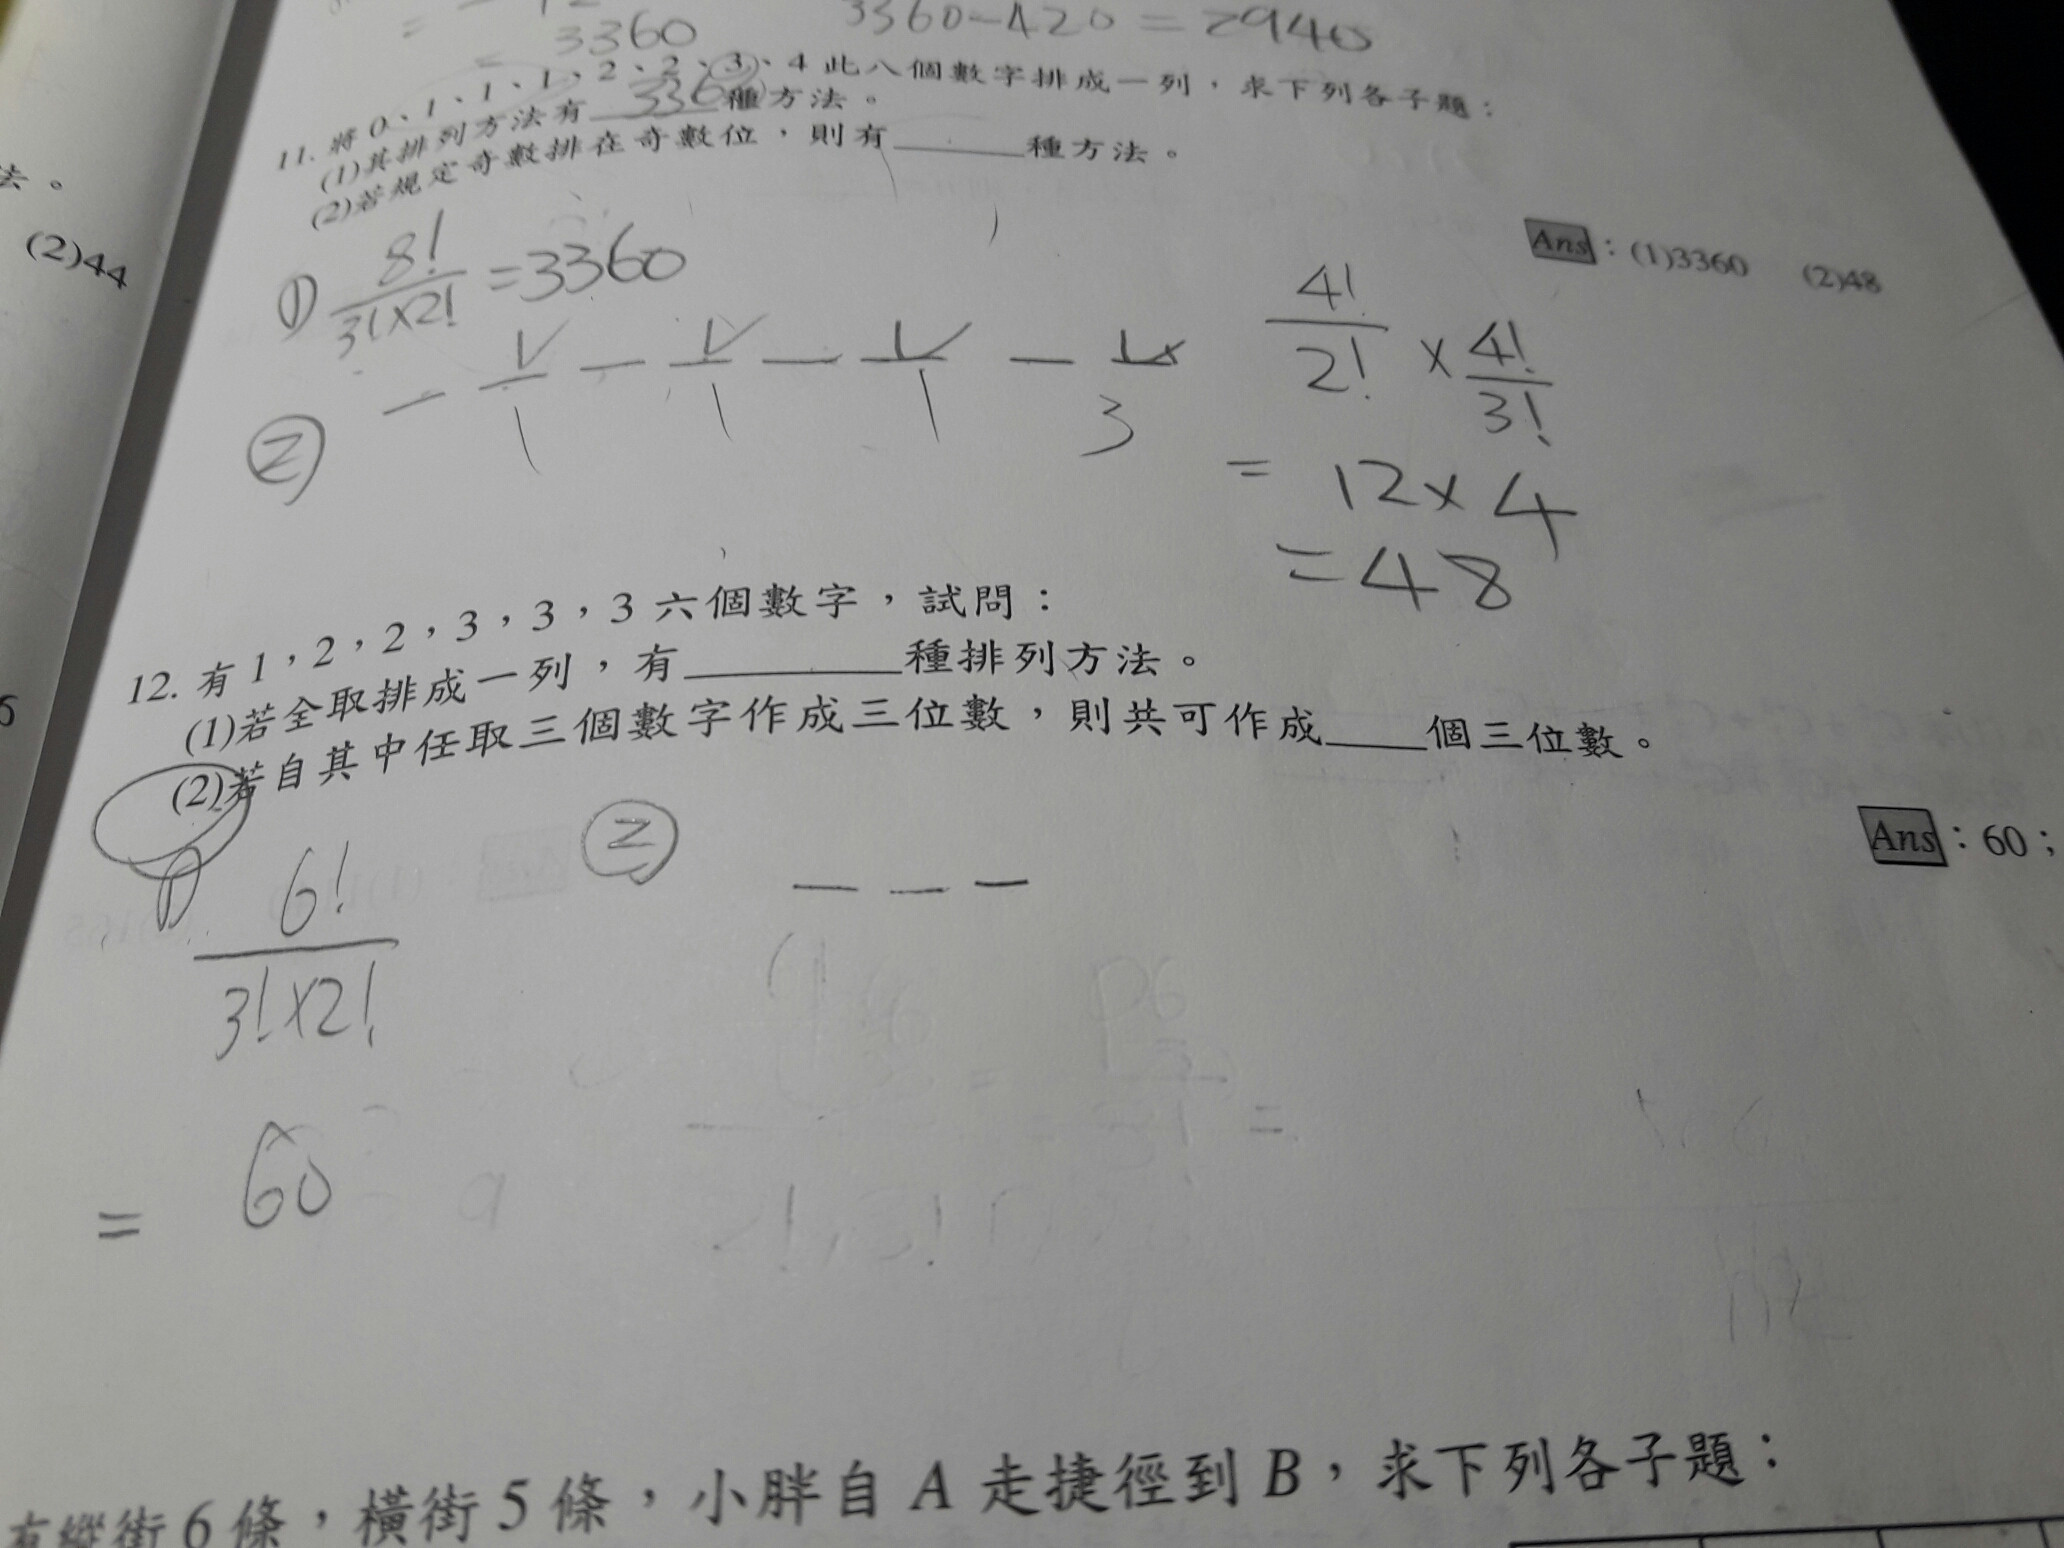 = 3360
3360-420=2940
11. 將 0、1、1、1、2、2、3、4 此八個數字排成一列，求下列各子題：
(1)其排列方法有 3360 種方法。
(2)若規定奇數排在奇數位，則有____種方法。
Ans：(1)3360 (2)48
① 8!/3!×2! =3360
② 1 1 1 3
4!/2! × 4!/3!
= 12×4
=48
12. 有 1，2，2，3，3，3 六個數字，試問：
(1)若全取排成一列，有____種排列方法。
(2)若自其中任取三個數字作成三位數，則共可作成____個三位數。
Ans：60；
① 6!/3!×2!
= 60
② _ _ _
有縱街 6 條，橫街 5 條，小胖自 A 走捷徑到 B，求下列各子題：
法。
(2)44